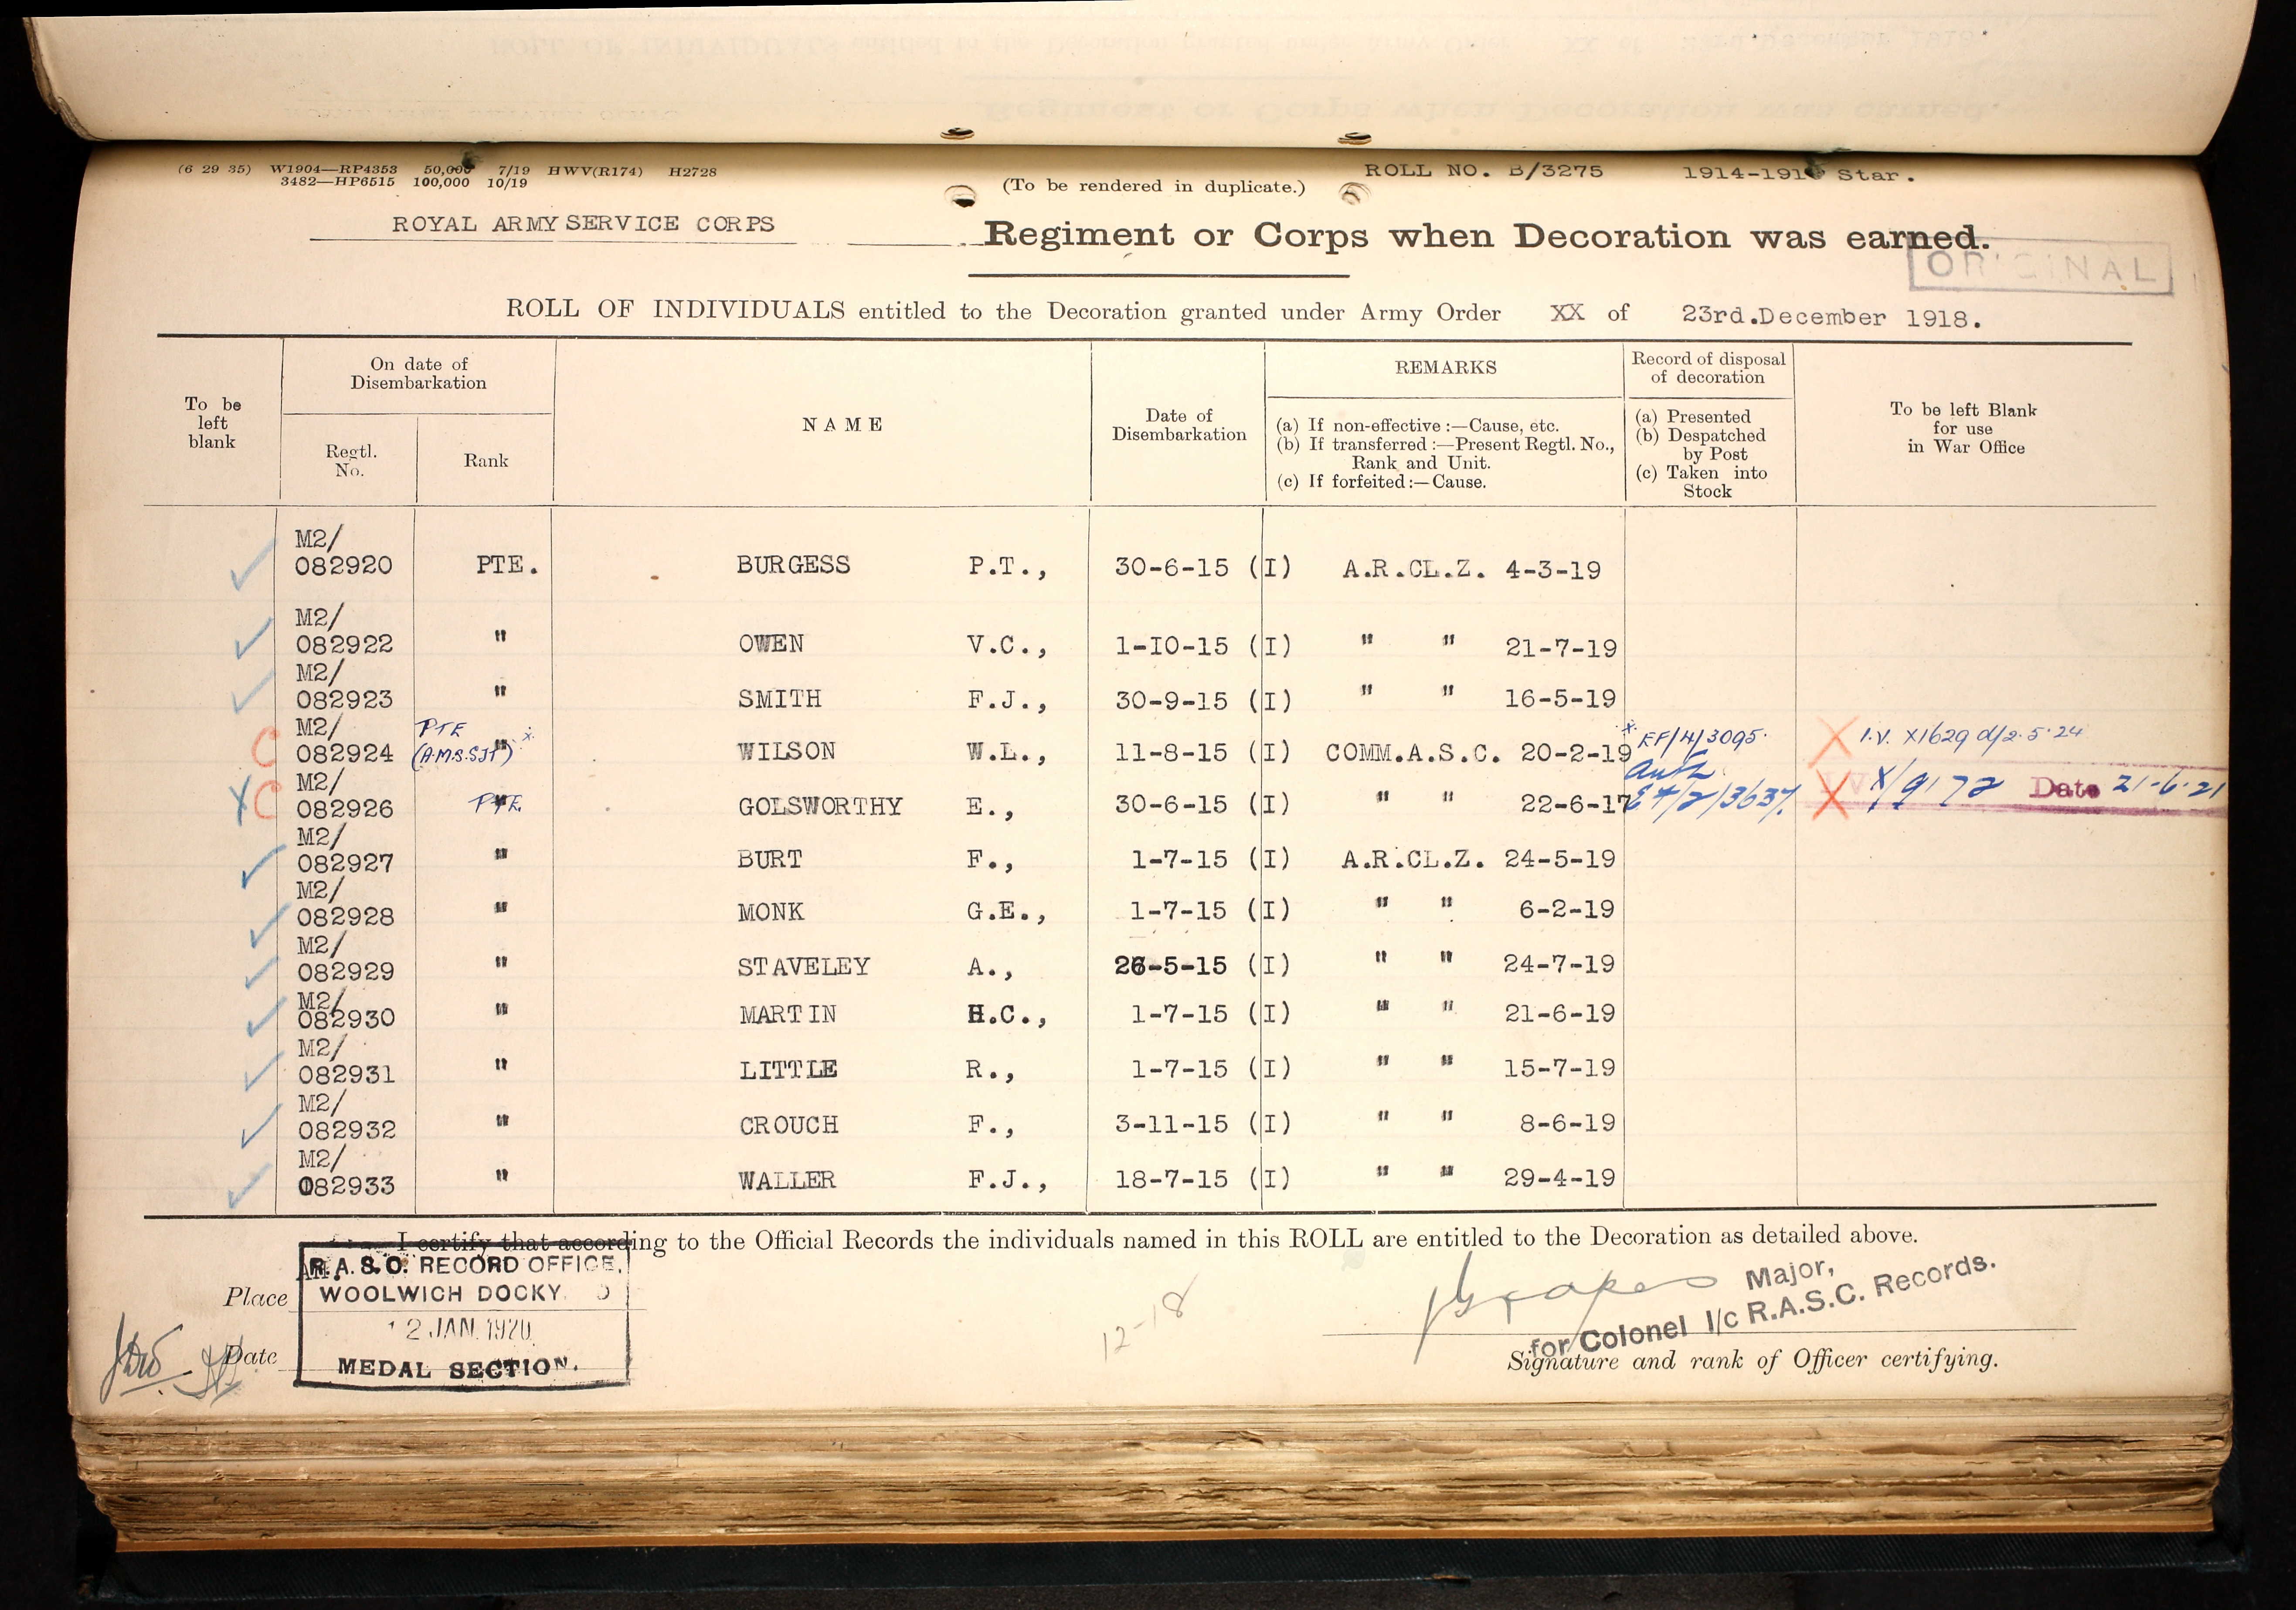 (6 29 35) W1904—RP4353 50,000 7/19 HWV(R174) H2728
3482—HP6515 100,000 10/19
(To be rendered in duplicate.)
ROLL NO. B/3275 1914-191 Star.
ROYAL ARMY SERVICE CORPS Regiment or Corps when Decoration was earned.
ORIGINAL
ROLL OF INDIVIDUALS entitled to the Decoration granted under Army Order XX of 23rd.December 1918.
To be left blank
On date of Disembarkation
Regtl. No.
Rank
NAME
Date of Disembarkation
REMARKS
(a) If non-effective :—Cause, etc.
(b) If transferred :—Present Regtl. No., Rank and Unit.
(c) If forfeited :—Cause.
Record of disposal of decoration
(a) Presented
(b) Despatched by Post
(c) Taken into Stock
To be left Blank for use in War Office
M2/
082920 PTE. BURGESS P.T., 30-6-15 (I) A.R.CL.Z. 4-3-19
M2/
082922 " OWEN V.C., 1-10-15 (I) " " 21-7-19
M2/
082923 " SMITH F.J., 30-9-15 (I) " " 16-5-19
M2/ PTE
C 082924 (A.M.S.SJT) x " WILSON W.L., 11-8-15 (I) COMM.A.S.C. 20-2-19 x EF/4/3095. X I.V. X1629 d/2.5.24
M2/ Auth
X C 082926 PTE GOLSWORTHY E., 30-6-15 (I) " " 22-6-17 X X/9172 Date 21-6-21
M2/
082927 " BURT F., 1-7-15 (I) A.R.CL.Z. 24-5-19
M2/
082928 " MONK G.E., 1-7-15 (I) " " 6-2-19
M2/
082929 " STAVELEY A., 26-5-15 (I) " " 24-7-19
M2/
082930 " MARTIN H.C., 1-7-15 (I) " " 21-6-19
M2/
082931 " LITTLE R., 1-7-15 (I) " " 15-7-19
M2/
082932 " CROUCH F., 3-11-15 (I) " " 8-6-19
M2/
082933 " WALLER F.J., 18-7-15 (I) " " 29-4-19
I certify that according to the Official Records the individuals named in this ROLL are entitled to the Decoration as detailed above.
R.A.S.C. RECORD OFFICE,
Place WOOLWICH DOCKY
12 JAN. 1920
Date
MEDAL SECTION.
12-18
Major,
for Colonel I/c R.A.S.C. Records.
Signature and rank of Officer certifying.